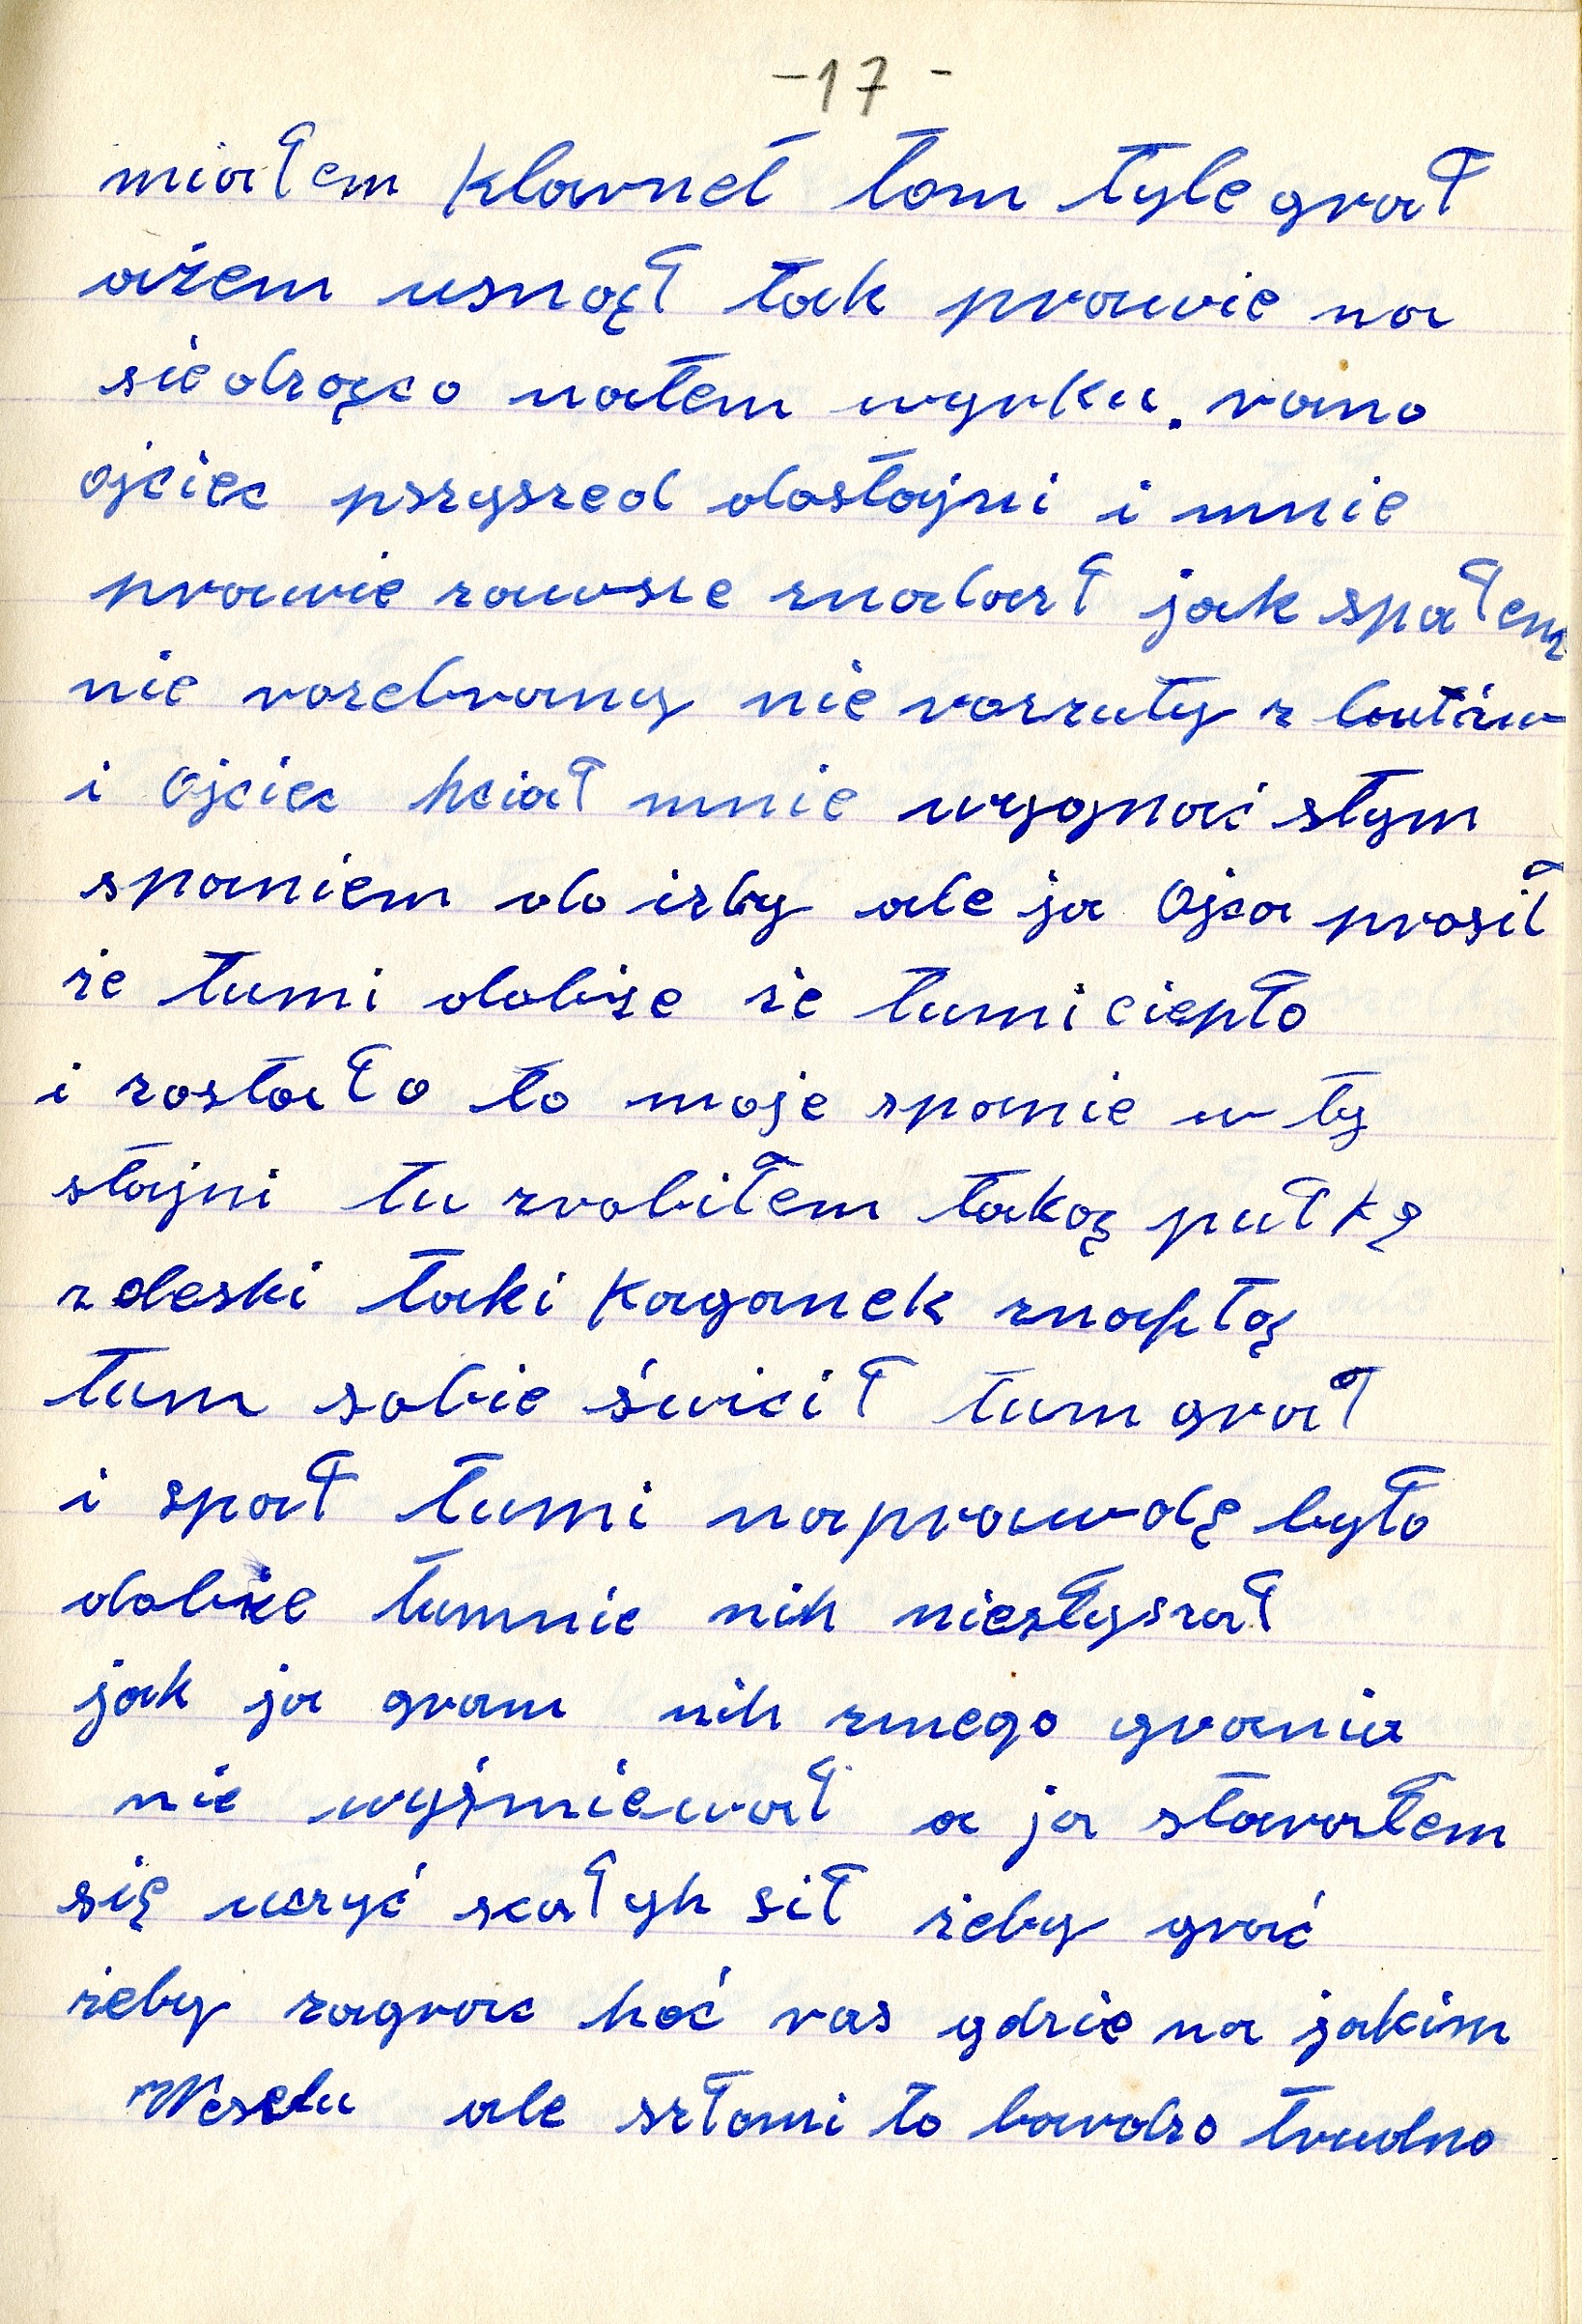 -17-
miałem klarnet tom tyle grał
ażem usnął tak prawie na
siedząco natem wyrku. rano
ojciec pszyszed dostajni i mnie
prawie zawsze znalazł jak spałem
nie rozebrany nie rozzuty z butów
i Ojciec hciał mnie wygnać stym
spaniem do izby ale ja Ojca prosił
że tumi dobże że tumi ciepło
i zostało to moje spanie w ty
stajni tu zrobiłem taką pułkę
z deski taki kaganek znaftą
tum sobie świcił tum grał
i spał tumi naprawdę było
dobże tumnie nih niesłyszał
jak ja gram nih zmego grania
nie wyśmiewał a ja starałem
się uczyć scałyh sił żeby grać
żeby zagrac hoć ras gdzie na jakim
Weselu ale szłomi to bardzo trudno